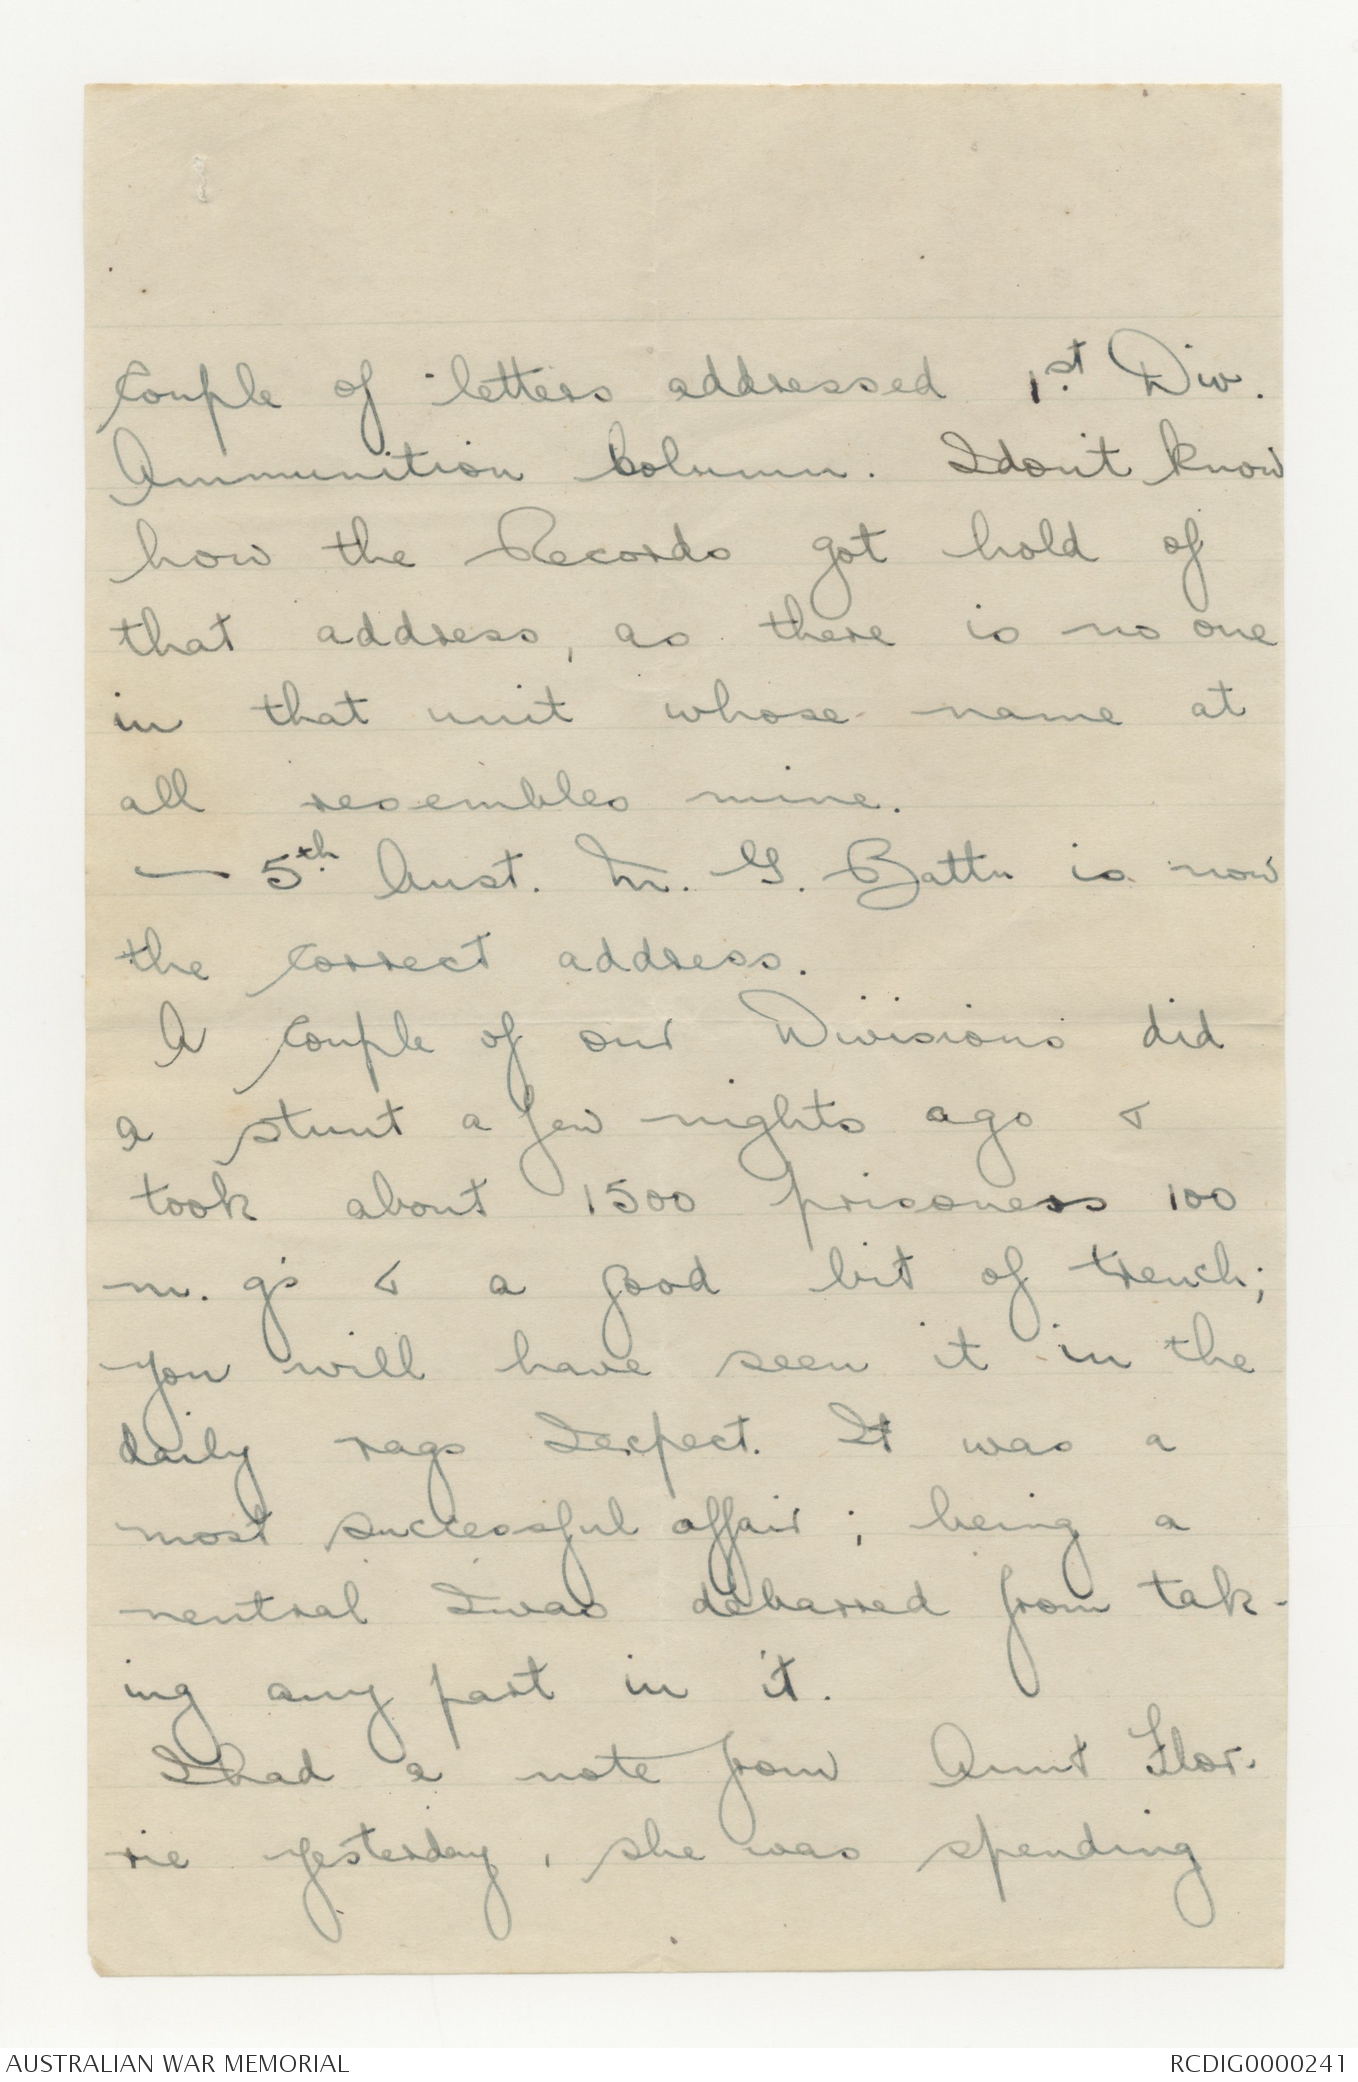 couple of letters addressed 1st Div.
Ammunition Column. I don't know
how the Records got hold of
that address, as there is no one
in that unit whose name at
all resembles mine.
— 5th Aust. M. G. Battn is now
the correct address.
A couple of our Divisions did
a stunt a few nights ago &
took about 1500 prisoners 100
m. gs & a good bit of trench;
you will have seen it in the
daily rags I expect. It was a
most successful affair; being a
neutral I was debarred from tak-
ing any part in it.
I had a note from Aunt Flor-
rie yesterday, she was spending
AUSTRALIAN WAR MEMORIAL
RCDIG0000241